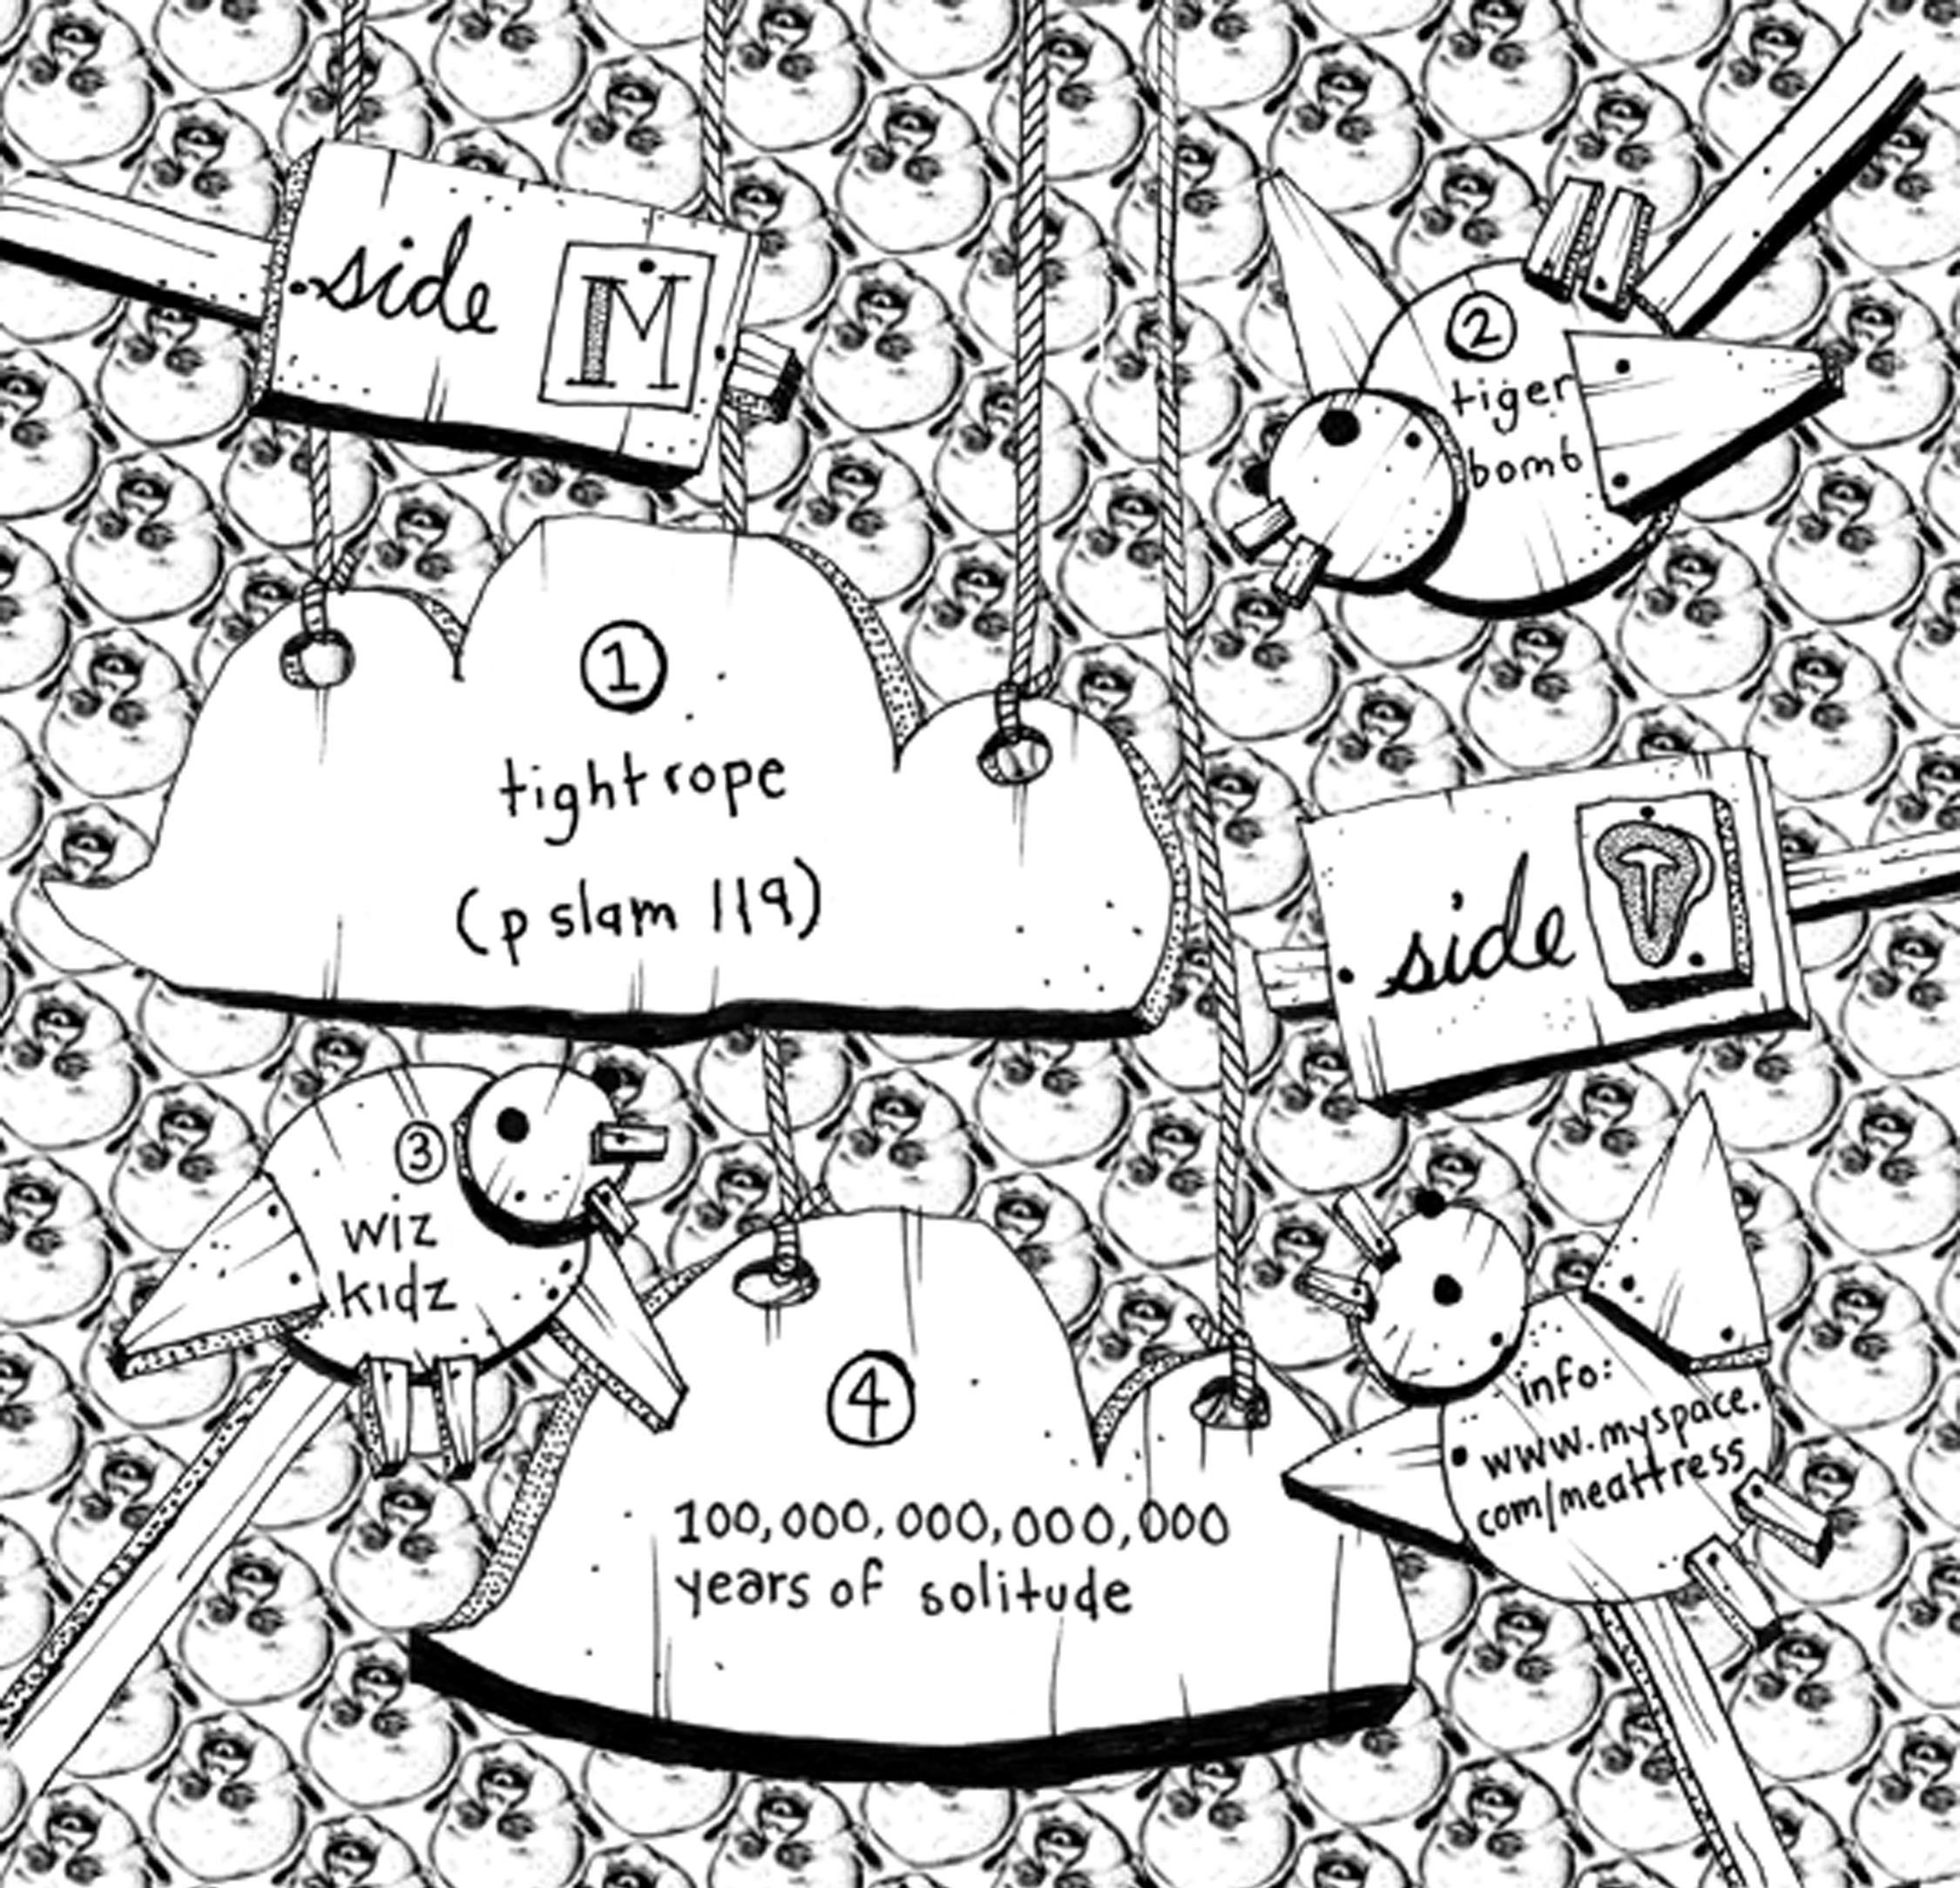 side M
1
tightrope
(pslam 119)
2
tiger
bomb
side T
3
wiz
kidz
4
100,000,000,000,000
years of solitude
info:
www.myspace.
com/meattress